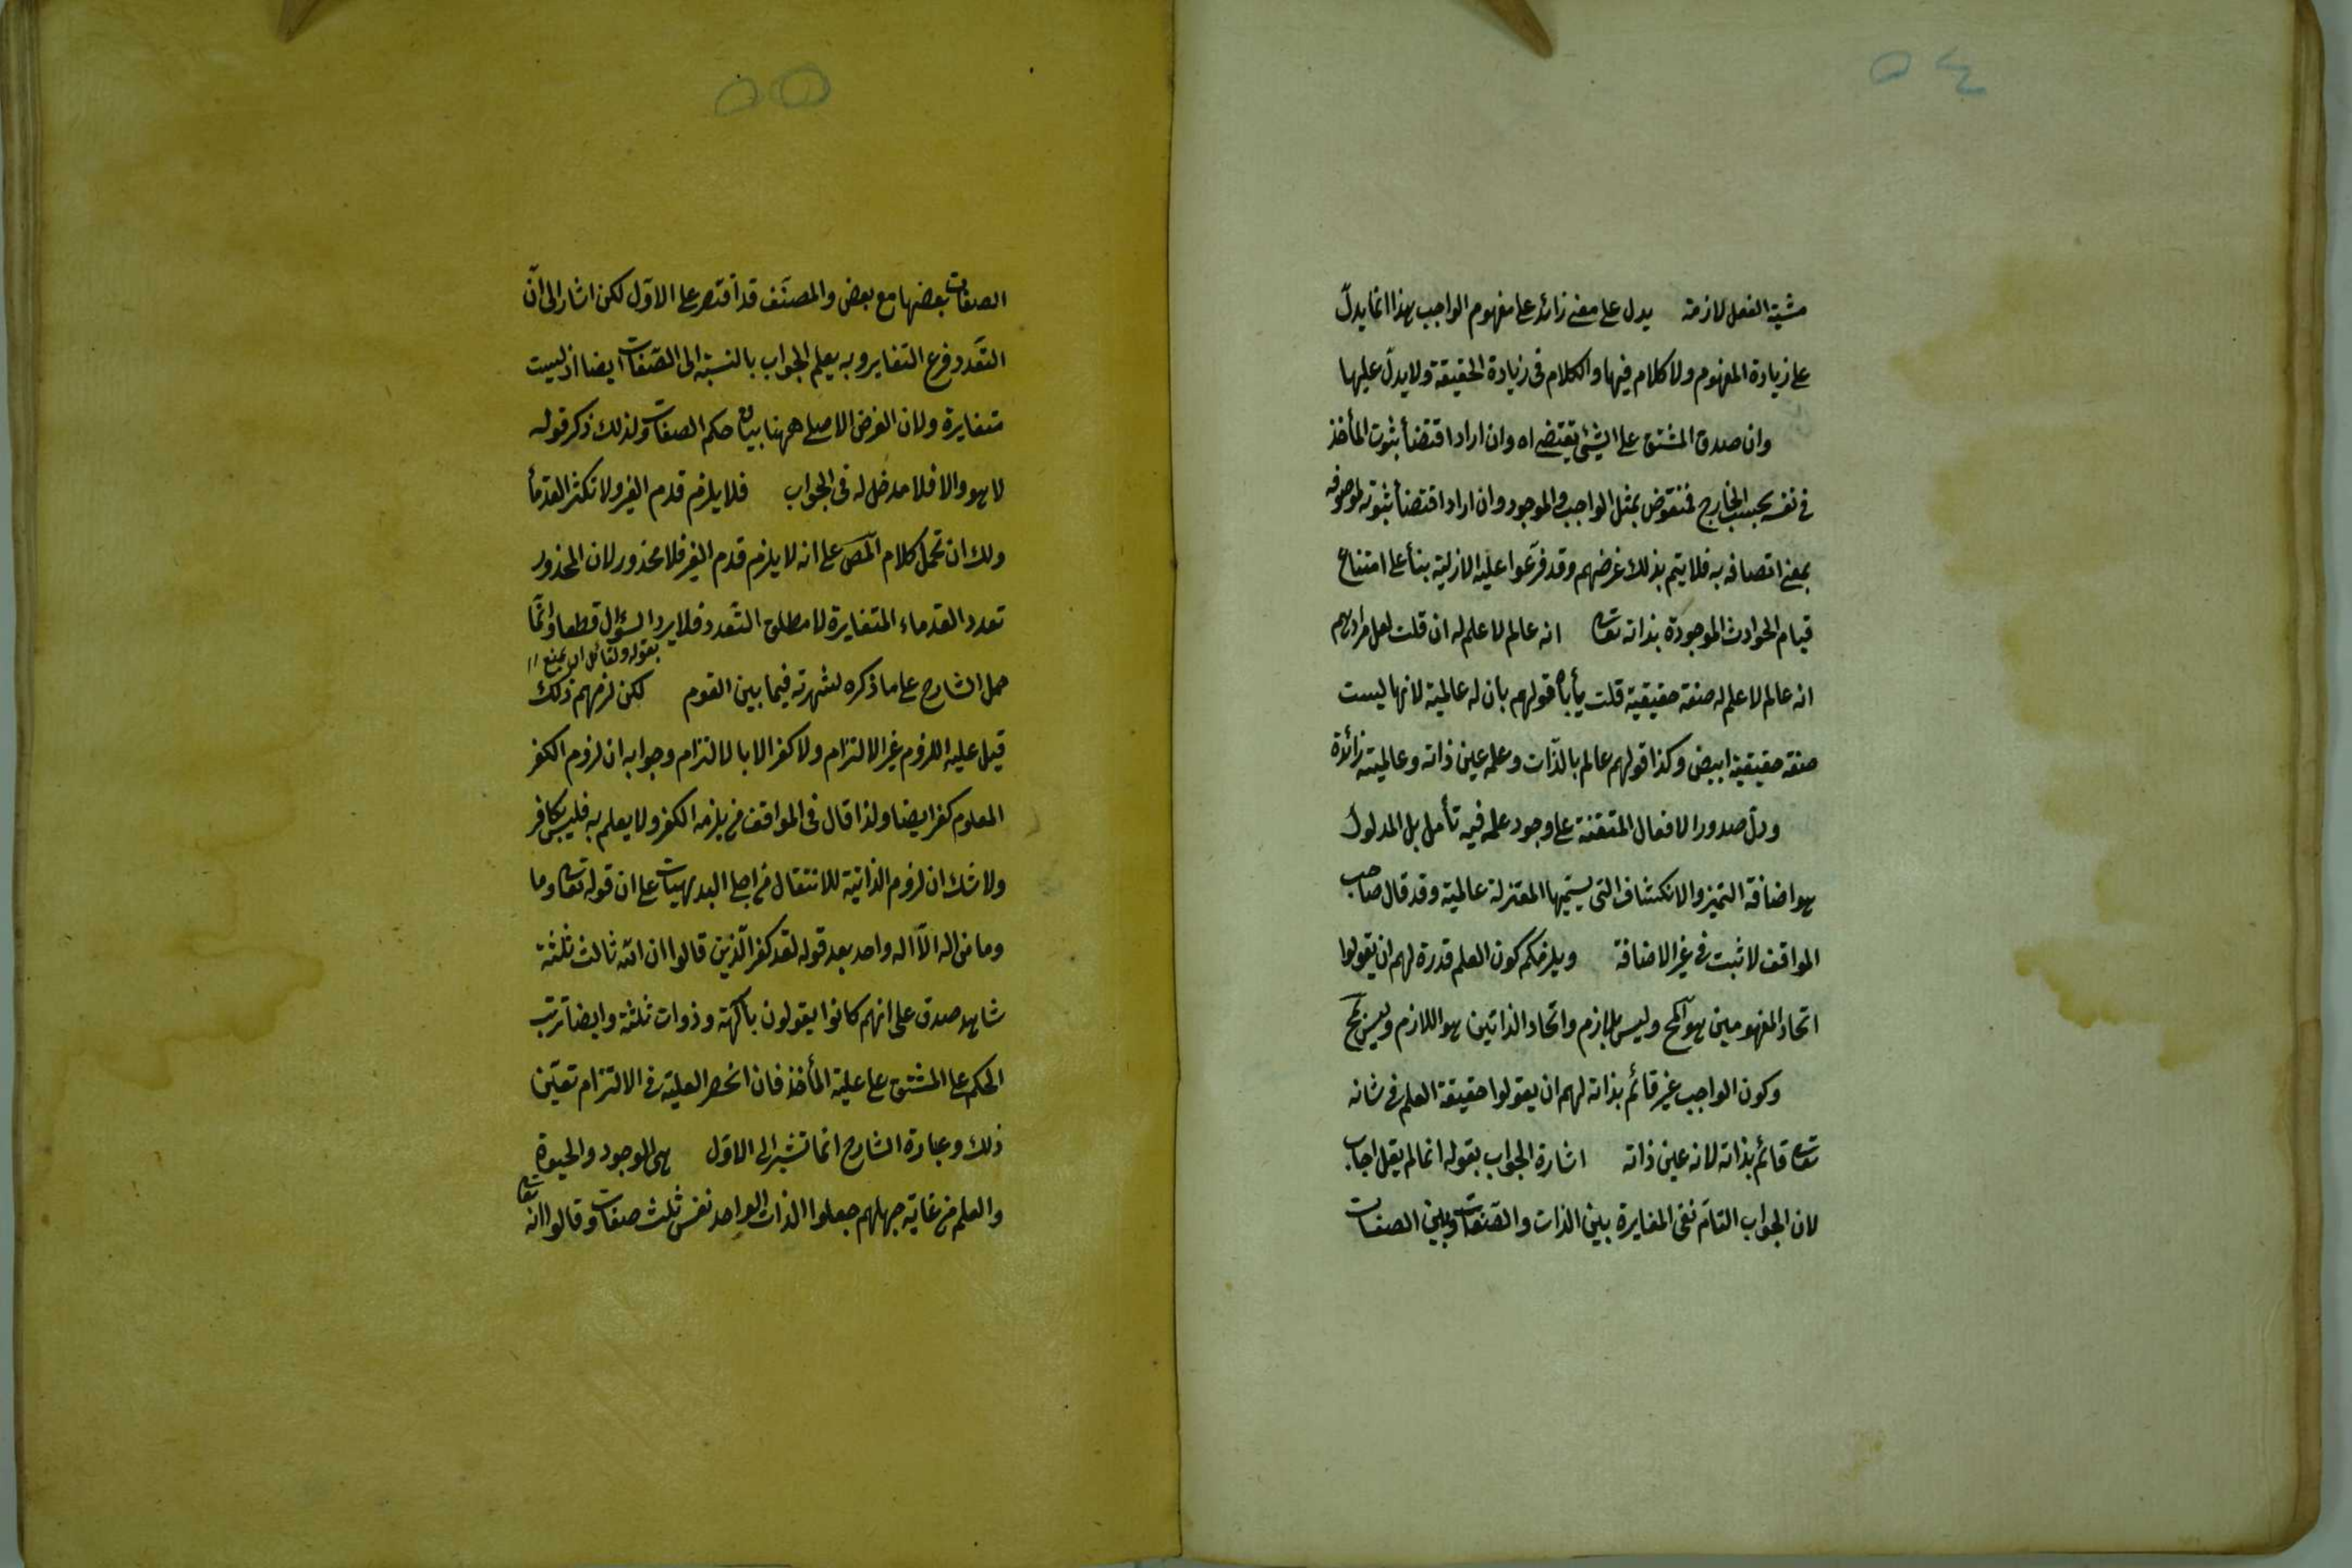 ٥٤
مشية الفعل لازمة يدل على معنى زائد على مفهوم الواجب هذا انما يدلّ
على زيادة المفهوم ولا كلام فيها والكلام فى زيادة الحقيقة ولا يدلّ عليها
وان صدق المشتق على الشئ يقتضى اه وان اراد اقتضأ ثبوت المأخذ
فى نفسه بحسب الخارج فمنقوض بمثل الواجب والموجود وان اراد اقتضأ ثبوته لموصوفه
بمعنى اتصافه به فلا يتم بذلك غرضهم وقد فرّعوا عليه الازلية بنأ على امتناع
قيام الحوادث الموجودة بذاته تعالى انه عالم لا علم له ان قلت لعل مرادهم
انه عالم لا علم له صفة حقيقية قلت يأباه قولهم بان له عالمية لانها ليست
صفة حقيقية ايضا وكذا قولهم عالم بالذّات وعلمه عين ذاته وعالميته زائدة
ودلّ صدور الافعال المتقنة على وجود علمه فيه تأمل بل المدلول
هو اضافة التميز والانكشاف التى يسمّيها المعتزلة عالمية وقد قال صاحب
المواقف لا ثبت فى غير الاضافة ويلزمكم كون العلم قدرة لهم ان يقولوا
اتحاد المفهومين هو المح وليس بلازم واتحاد الذاتين هو اللازم وليس بمح
وكون الواجب غير قائم بذاته لهم ان يقولوا حقيقة العلم فى شانه
تعالى قائم بذاته لانه عين ذاته اشارة الجواب بقوله انما لم يقل اجاب
لان الجواب التامّ نفى المغايرة بين الذات والصّفات وبين الصفات
٥٥
الصفات بعضها مع بعض والمصنّف قد اقتصر على الاوّل لكن اشار الى انّ
التعّدد فرع التغاير وبه يعلم الجواب بالنسبة الى الصّفات ايضا اذ ليست
متغايرة ولان الغرض الاصلى ههنا بيان حكم الصفات ولذلك ذكر قوله
لا هو والا فلا مدخل له فى الجواب فلا يلزم قدم الغير ولا تكثر القدمأ
ولك ان تحمل كلام المص على انه لا يلزم قدم الغير فلا محذور لان المحذور
تعدد القدماء المتغايرة لا مطلق التّعدد فلا يرد السؤال قطعا وانّما
بقوله ولقائل ان يمنع اا
حمل الشارح على ما ذكره لشهرته فيما بين القوم لكن لزمهم ذلك
قيل عليه اللزوم غير الالتزام ولا كفر الا بالالتزام وجوابه ان لزوم الكفر
المعلوم كفر ايضا ولذا قال فى المواقف من يلزمه الكفر ولا يعلم به فليس بكافر
ولا شك ان لزوم الذاتية للانتقال من اجلى البديهيات على ان قوله تعالى وما
وما من اله الّا اله واحد بعد قوله لقد كفر الّذين قالوا ان الله ثالث ثلثة
شاهد صدق على انهم كانوا يقولون بآلهة وذوات ثلثة وايضا ترتب
الحكم على المشتق على علية المأخذ فان انحصر العلية فى الالتزام تعيّن
ذلك وعبارة الشارح انما تشير الى الاوّل هى الوجود والحيوة
والعلم من غاية جهلهم جعلوا الذات الواحد نفس ثلث صفات وقالوا انه تعالى